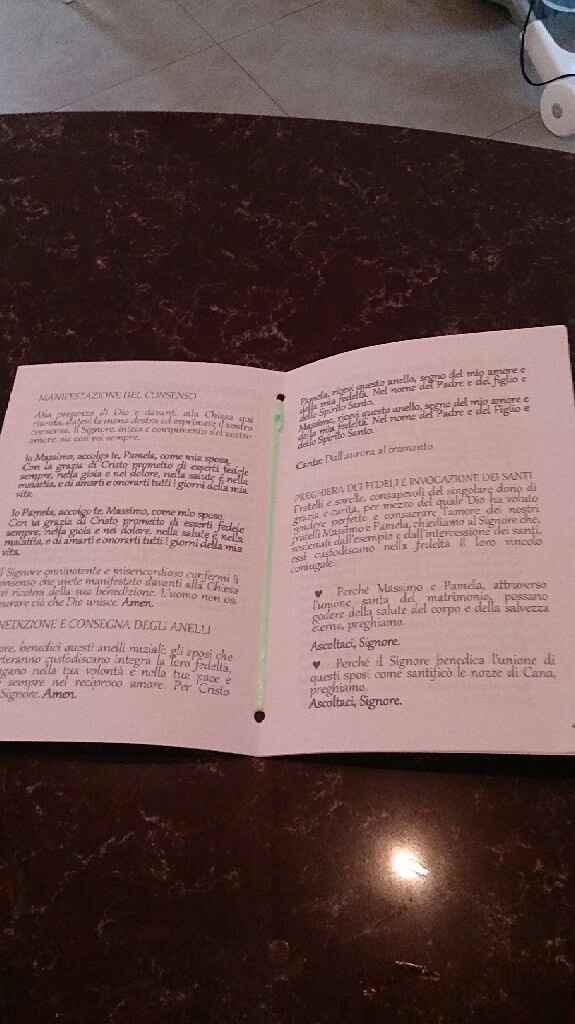 MANIFESTAZIONE DEL CONSENSO
Alla presenza di Dio e davanti alla Chiesa qui
riunita, datevi la mano destra ed esprimete il vostro
consenso. Il Signore, inizio e compimento del vostro
amore, sia con voi sempre.
Io Massimo, accolgo te, Pamela, come mia sposa.
Con la grazia di Cristo prometto di esserti fedele
sempre, nella gioia e nel dolore, nella salute e nella
malattia, e di amarti e onorarti tutti i giorni della mia
vita.
Io Pamela, accolgo te, Massimo, come mio sposo.
Con la grazia di Cristo prometto di esserti fedele
sempre, nella gioia e nel dolore, nella salute e nella
malattia, e di amarti e onorarti tutti i giorni della mia
vita.
Il Signore onnipotente e misericordioso confermi il
consenso che avete manifestato davanti alla Chiesa
vi ricolmi della sua benedizione. L'uomo non osi
separare ciò che Dio unisce. Amen.
NEDIZIONE E CONSEGNA DEGLI ANELLI
ore, benedici questi anelli nuziali: gli sposi che
rteranno custodiscano integra la loro fedeltà,
gano nella tua volontà e nella tua pace e
sempre nel reciproco amore. Per Cristo
Signore. Amen.
Pamela, ricevi questo anello, segno del mio amore e
della mia fedeltà. Nel nome del Padre e del Figlio e
dello Spirito Santo.
Massimo, ricevi questo anello, segno del mio amore e
della mia fedeltà. Nel nome del Padre e del Figlio e
dello Spirito Santo.
Canto: Dall'aurora al tramonto
PREGHIERA DEI FEDELI E INVOCAZIONE DEI SANTI
Fratelli e sorelle, consapevoli del singolare dono di
grazia e carità, per mezzo del quale Dio ha voluto
rendere perfetto e consacrare l'amore dei nostri
fratelli Massimo e Pamela, chiediamo al Signore che,
sostenuti dall'esempio e dall'intercessione dei santi,
essi custodiscano nella fedeltà il loro vincolo
coniugale.
♥ Perché Massimo e Pamela, attraverso
l'unione santa del matrimonio, possano
godere della salute del corpo e della salvezza
eterna, preghiamo.
Ascoltaci, Signore.
♥ Perché il Signore benedica l'unione di
questi sposi come santificò le nozze di Cana,
preghiamo.
Ascoltaci, Signore.